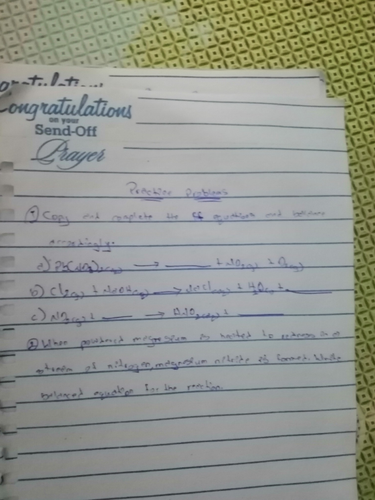 ongratulations
Congratulations
on your
Send-Off
Prayer
Practice Problems
① Copy and complete the equations and balance
accordingly.
a) → + NO2(g) + O2(g)
b) Cl2(g) + NaOH(aq) → NaCl(aq) + H2O(l) +
c) + →  +
② When powdered magnesium is heated to redness in a
stream of nitrogen, magnesium nitride is formed. Write
balanced equation for the reaction.